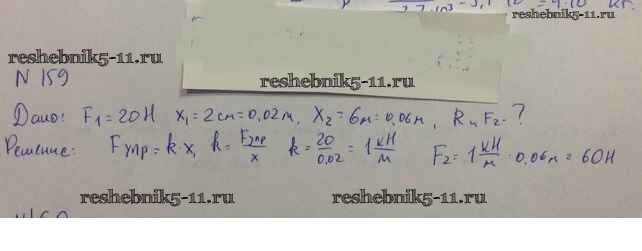 reshebnik5-11.ru
reshebnik5-11.ru
N 159
reshebnik5-11.ru
Дано: F₁ = 20Н x₁ = 2см = 0,02м, x₂ = 6м = 0,06м, k и F₂ - ?
Решение: Fупр = k·x, k = Fупр/x k = 20/0,02 = 1 кН/м F₂ = 1 кН/м · 0,06м = 60Н
reshebnik5-11.ru reshebnik5-11.ru